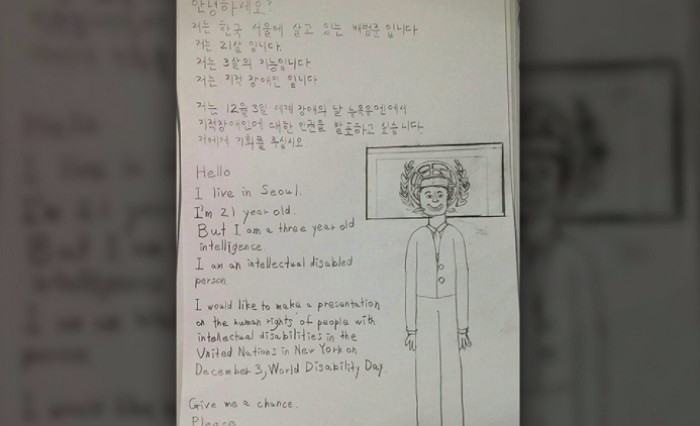 안녕하세요?
저는 한국 서울에 살고 있는 배범준 입니다
저는 21살 입니다.
저는 3살의 지능입니다
저는 지적 장애인 입니다
저는 12월 3일 세계 장애의 날 뉴욕유엔에서
지적장애인에 대한 인권을 발표하고 싶습니다.
저에게 기회를 주십시오
Hello
I live in Seoul.
I'm 21 year old.
But I am a three year old
intelligence.
I am an intellectual disabled
person
I would like to make a presentation
on the human rights of people with
intellectual disabilities in the
United Nations in New York on
December 3, World Disability Day.
Give me a chance.
Please